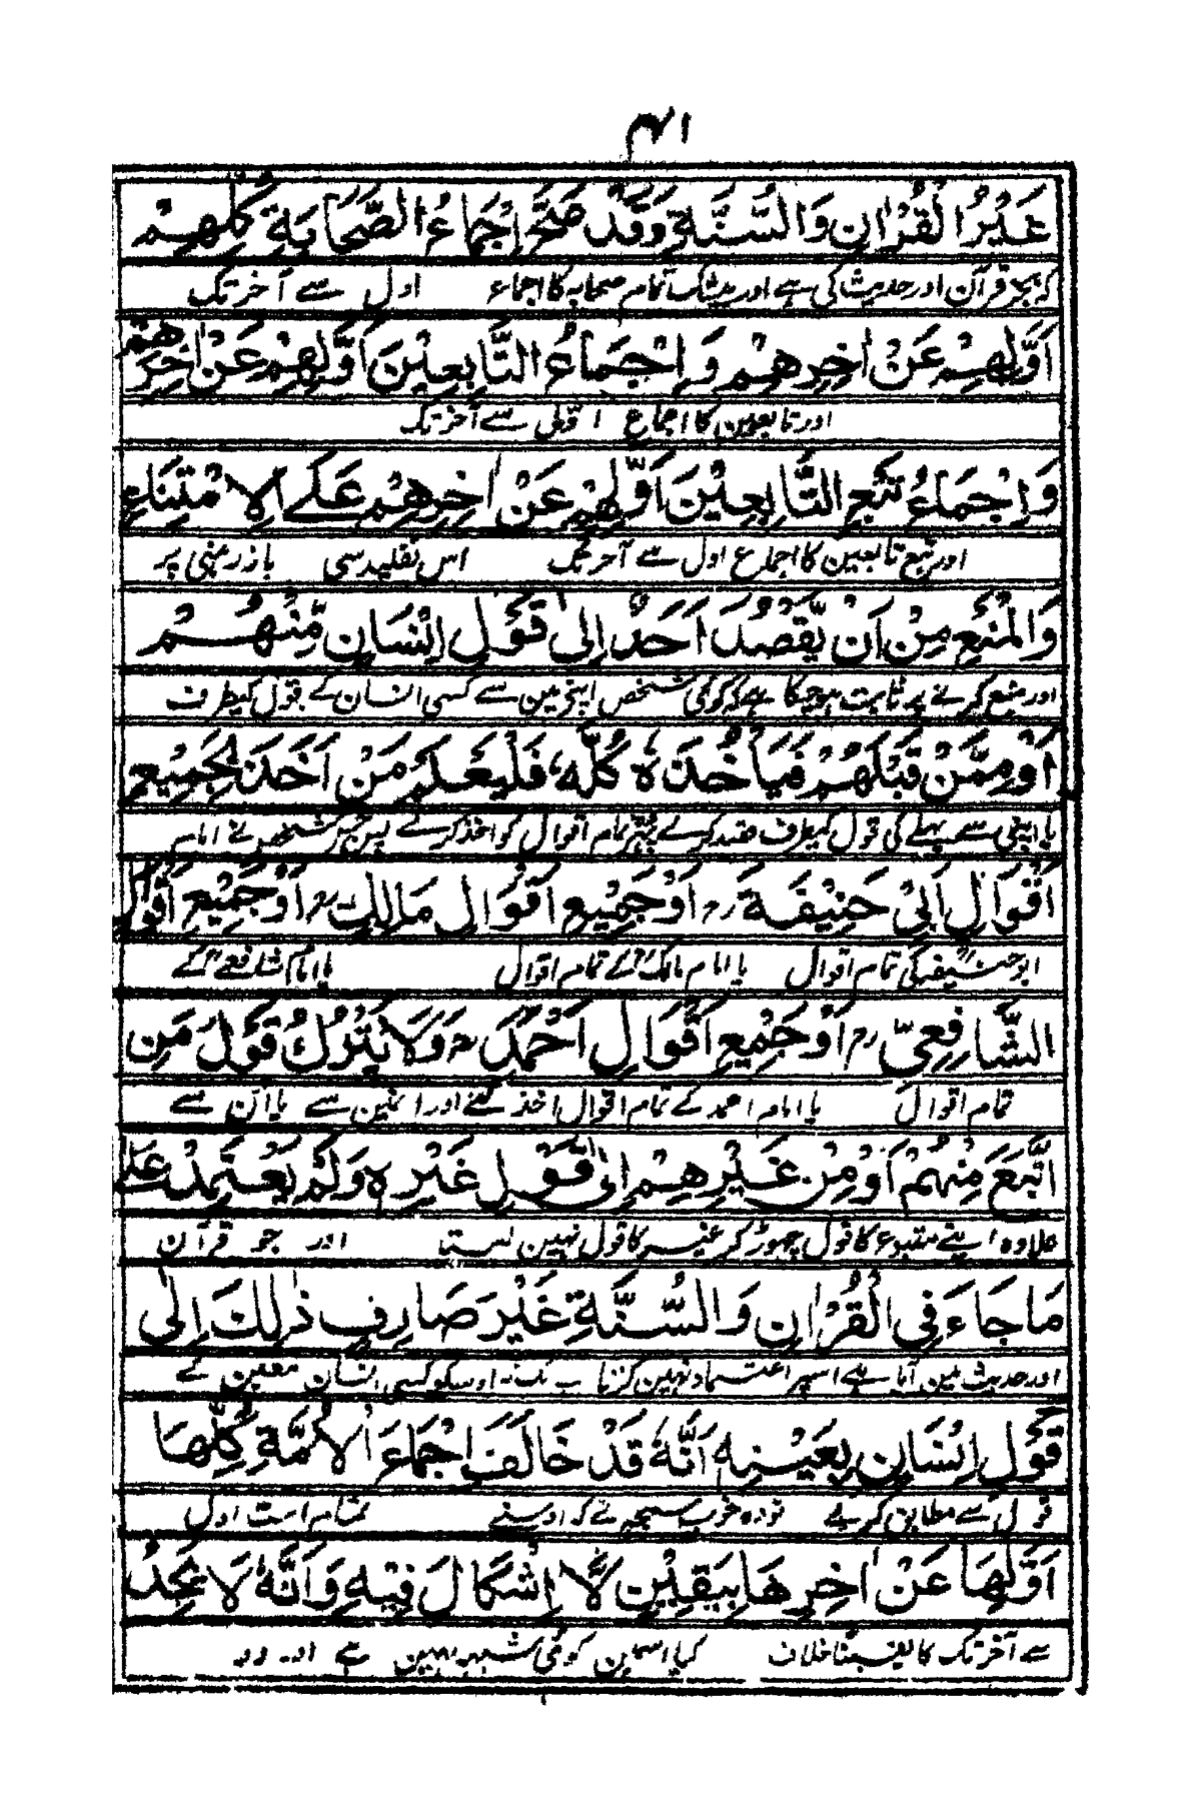 ۱۴۱
غَيْرُ الْقُرْاٰنِ وَالسُّنَّةِ وَقَدْ صَحَّ اِجْمَاعُ الصَّحَابَةِ كُلِّهِمْ
کہ بجز قرآن اور حدیث کی ہے اور بیشک تمام صحابہ کا اجماع اول سے آخر تک
اَوَّلِهِمْ عَنْ اٰخِرِهِمْ وَاِجْمَاعُ التَّابِعِيْنَ اَوَّلِهِمْ عَنْ اٰخِرِهِمْ
اور تابعین کا اجماع اوّل سے آخر تک
وَاِجْمَاعُ تَبَعِ التَّابِعِيْنَ اَوَّلِهِمْ عَنْ اٰخِرِهِمْ عَلَى الْاِمْتِنَاعِ
اور تبع تابعین کا اجماع اول سے آخر تک اس تقلید سی باز رہنی پر
وَالْمَنْعِ مِنْ اَنْ يَّقْصُدَ اَحَدٌ اِلٰى قَوْلِ اِنْسَانٍ مِّنْهُمْ
اور منع کرنے پر ثابت ہوچکا ہے کہ کوئی شخص اپنی مین سے کسی انسان کے قول کیطرف
اَوْ مِمَّنْ قَبْلَهُمْ فَيَاْخُذَهٗ كُلَّهٗ فَلْيَعْلَمْ مَنْ اَخَذَ بِجَمِيْعِ
یا اپنی سے پہلے کی قول کیطرف قصد کرے تمام اقوال کو اخذ کرے پس جس شخص نے امام
اَقْوَالِ اَبِيْ حَنِيْفَةَ رح اَوْ جَمِيْعِ اَقْوَالِ مَالِكٍ رح اَوْ جَمِيْعِ اَقْوَالِ
ابو حنیفہ کی تمام اقوال یا امام مالک کے تمام اقوال یا امام شافعے کے
الشَّافِعِيِّ رح اَوْ جَمِيْعِ اَقْوَالِ اَحْمَدَ رح وَلَا يَتْرُكُ قَوْلَ مَنِ
تمام اقوال یا امام احمد کے تمام اقوال اخذ کئے اور انمین سے یا اُن سے
اتَّبَعَ مِنْهُمْ اَوْ مِنْ غَيْرِهِمْ اِلٰى قَوْلِ غَيْرِهٖ وَلَمْ يَعْتَمِدْ عَلٰى
علاوہ اپنے متبوع کا قول چھوڑ کر غیر کا قول نہین لیتا اور جو قرآن
مَا جَاءَ فِي الْقُرْاٰنِ وَالسُّنَّةِ غَيْرَ صَارِفٍ ذٰلِكَ اِلٰى
اور حدیث مین آیا ہے اسپر اعتماد نہین کرتا جب تک اوسکو کسی انسان معین کے
قَوْلِ اِنْسَانٍ بِعَيْنِهٖ اَنَّهٗ قَدْ خَالَفَ اِجْمَاعَ الْاُمَّةِ كُلِّهَا
قول سے مطابق کرلے تو وہ خوب سمجھ لے کہ اوسنے تمام امت اول
اَوَّلِهَا عَنْ اٰخِرِهَا بِيَقِيْنٍ لَّا اِشْكَالَ فِيْهِ وَاَنَّهٗ لَا يَجِدُ
سے آخر تک کا یقیناً خلاف کیا اسمین کوئی شبہہ نہین ہے اور وہ